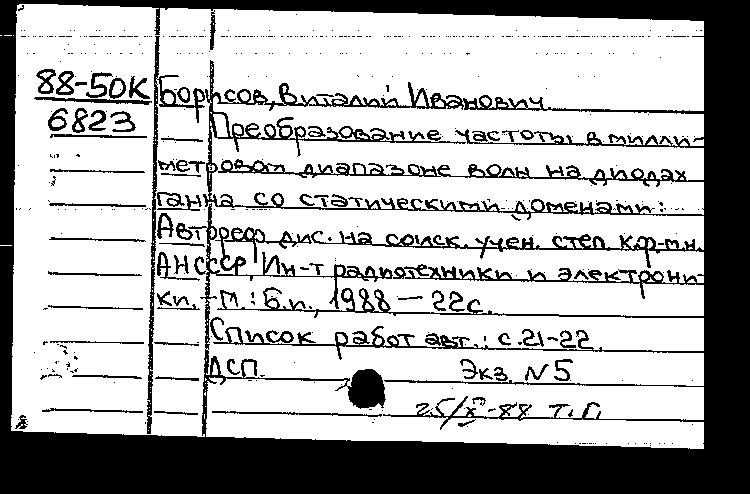 88-50К Борисов, Виталий Иванович.
6823 Преобразование частоты в милли-
метровом диапазоне волн на диодах
ганна со статическими доменами:
Автореф дис. на соиск. учен. степ. к.ф-м.н.
АНСССР, Ин-т радиотехники и электрони-
ки. - М.: Б.и., 1988 - 22с.
Список работ авт.: с.21-22.
ДСП. Экз. N5
Т.П.